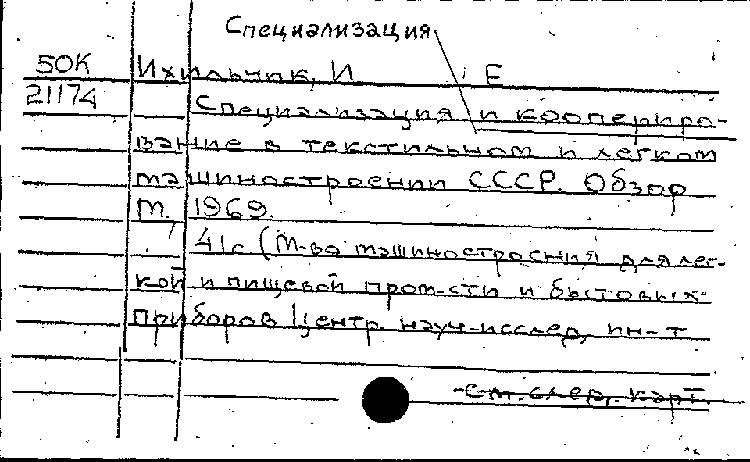 Специализация
50К Ихильчик, И Е
21174 Специализация и коопериро-
вание в текстильном и легком
машиностроении СССР. Обзор
М., 1969.
41с (М-во машиностроения для лег-
кой и пищевой пром-сти и бытовых
приборов Центр. науч.-исслед. ин-т
см. след. карт.